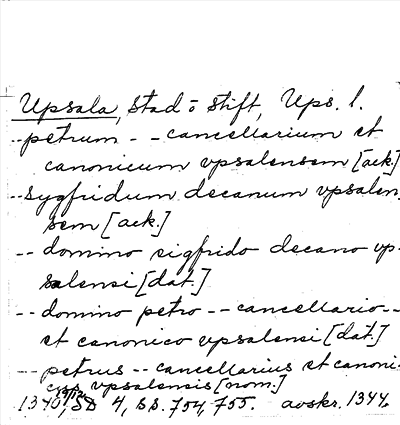 Upsala, stad o stift, Ups. l.
--petrum -- cancellarium et
canonicum vpsalensem [ack.]
--sygfridum decanum vpsalen-
sem [ack.]
-- domino sigfrido decano vp-
salensi [dat.]
-- domino petro -- cancellario--
et canonico vpsalensi [dat.]
-- petrus -- cancellarius et canoni-
cus vpsalensis [nom.]
1340, SD 4, ss. 754, 755. avskr. 1344.